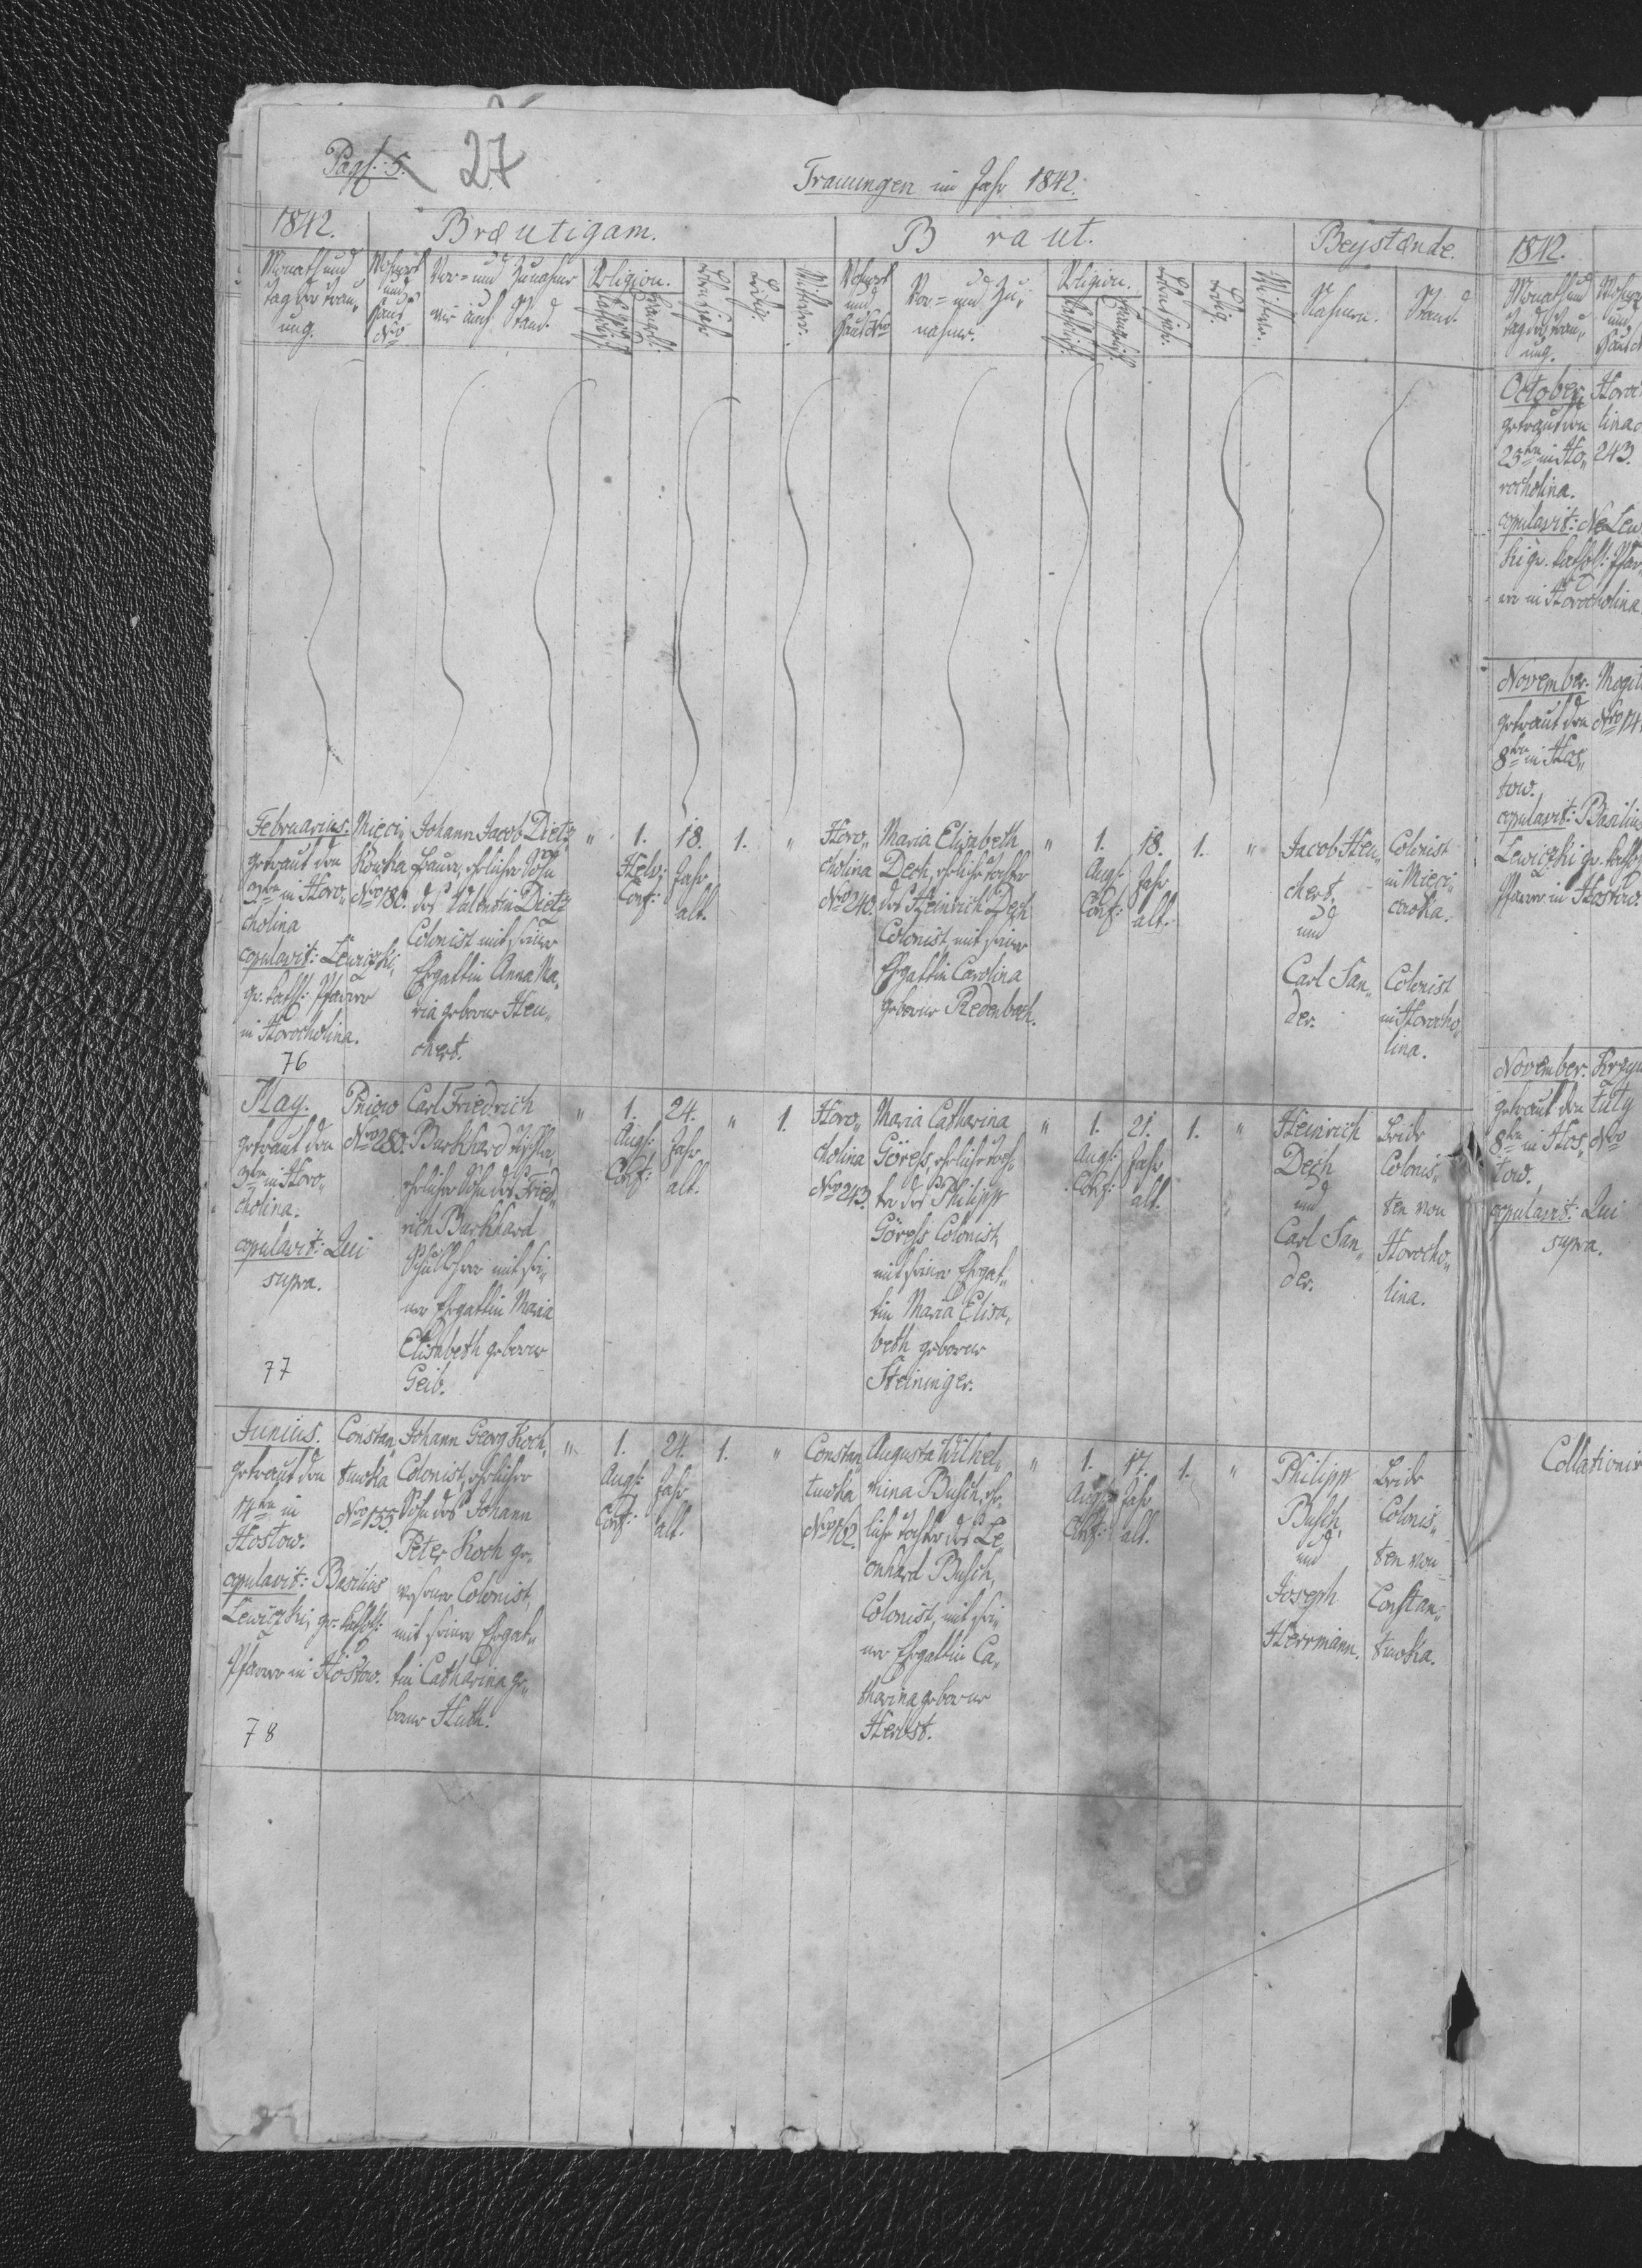 Pag: 5.
27
Trauungen im Jahr 1842.
1842.
Bræutigam.
Braut.
Beystænde.
Monath und
Tag der Trau„
ung.
Wohnort
und
Haus
Nro
Vor= und Zunahme
wie auch Stand.
Religion.
Katholisch
Evangeli:
Lebensjahr.
Ledig.
Wittwer.
Wohnort
und
Haus Nro
Vor= und Zu„
nahme.
Religion.
Katholisch
Evangelisch
Lebensjahr.
Ledig.
Wittwe.
Nahmen.
Stand.
Februarius.
getraut den
3ten in Horo„
cholina
copulavit: Lewiczki,
gr. kath: Pfarrer
in Horocholina.
76
Mieci„
kowka
Nro 180.
Johann Jacob Dietz,
Bauer, ehelicher Sohn
des Valentin Dietz
Colonist mit seiner
Ehgattin Anna Ma„
ria geborne Heu„
chert.
"
1.
Helv:
Conf:
18.
Jahr
alt.
1.
"
Horo„
cholina
Nro 240.
Maria Elisabeth
Dech, eheliche Tochter
des Heinrich Dech
Colonist, mit seiner
Ehgattin Carolina
geborne Redenbach.
"
1.
Augs:
Conf:
18.
Jahr
alt.
1.
"
Jacob Heu„
chert,
und
Carl San„
der.
Colonist
in Mieci„
cowka.
Colonist
in Horocho„
lina.
May.
getraut den
3ten in Horo„
cholina.
copulavit: Qui
supra.
77
Pniow
Nro 280.
Carl Friedrich
Burkhard Tischler,
ehelicher Sohn des Fried„
rich Burkhard
Schullehrer mit sei„
ner Ehgattin Maria
Elisabeth geborne
Geib.
"
1.
Augs:
Conf:
24.
Jahr
alt.
"
1.
Horo„
cholina
Nro 243.
Maria Catharina
Göress, eheliche Toch„
ter des Philipp
Göress Colonist,
mit seiner Ehgat„
tin Maria Elisa„
beth geborne
Steininger.
"
1.
Augs:
Conf:
21.
Jahr
alt.
1.
"
Heinrich
Dech
und
Carl San„
der.
Beide
Colonis„
ten von
Horocho„
lina.
Junius.
getraut den
14ten in
Hostow.
copulavit: Basilius
Lewiczki, gr. kathol:
Pfarrer in Hostow.
78
Constan„
tuwka
Nro 155.
Johann Georg Koch,
Colonist, ehelicher
Sohn des Johann
Peter Koch ge„
wesener Colonist,
mit seiner Ehgat„
tin Catharina ge„
borne Huth.
"
1.
Augs:
Conf:
24.
Jahr
alt.
1.
"
Constan„
tuwka
Nro 162.
Augusta Wilhel„
mina Busch, ehe„
liche Tochter des Le„
onhard Busch,
Colonist, mit sei„
ner Ehgattin Ca„
tharina geborne
Herbst.
"
1.
Augs:
Conf:
17.
Jahr
alt.
1.
"
Philipp
Busch,
und
Joseph
Herrmann.
Beide
Colonis„
ten von
Constan„
tuwka.
1842.
Monath und
Tag der Trau„
ung.
Wohnort
und
Haus
October.
getraut den
25ten in Ho„
rocholina.
copulavit: Ne Lew
ki gr. kathol: Pfar
rer in Horocholina
Horo
lina
243.
November.
getraut den
8ten in Hos„
tow.
copulavit: Basilius
Lewiczki gr. kath
Pfarrer in Hostow.
Mogil
Nro 14
November.
getraut den
8ten in Hos„
tow.
copulavit: Qui
supra.
Krzyw
tuly
Nro
Collationir